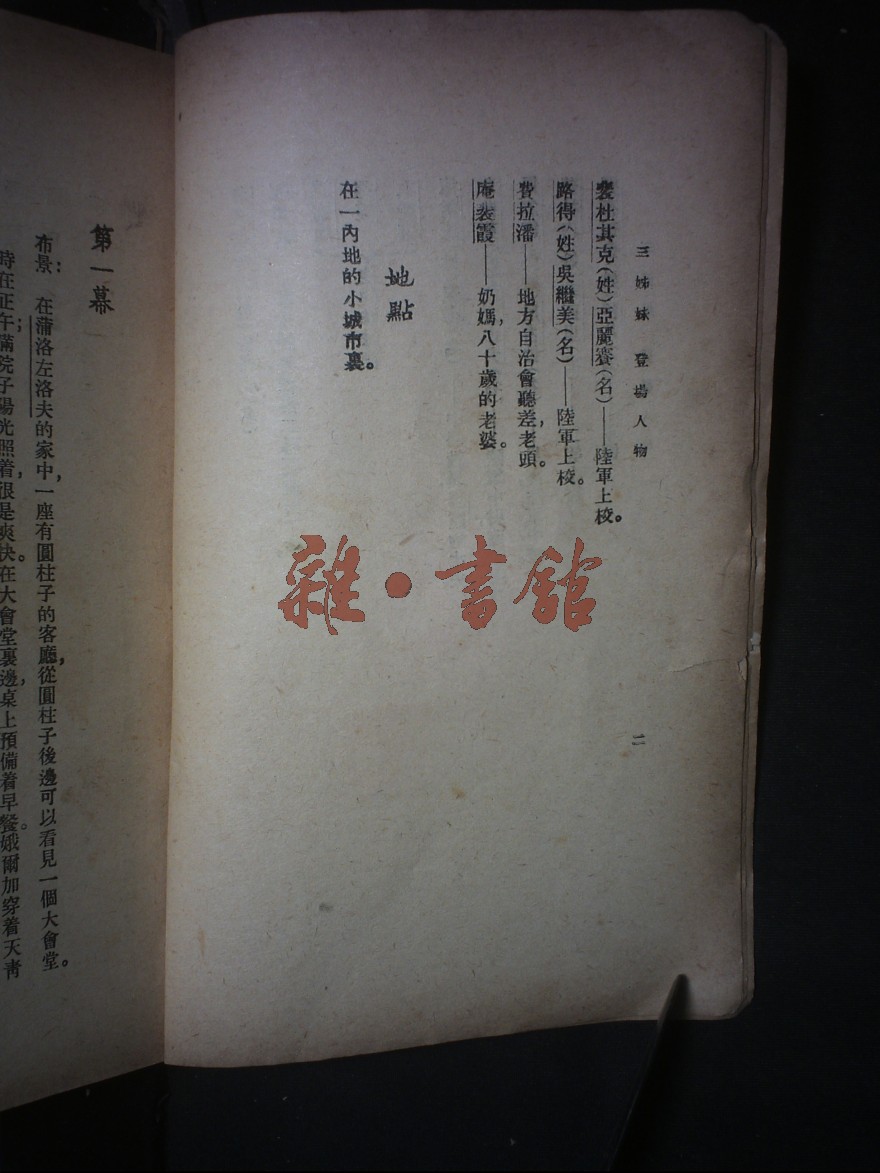 三姊妹 登場人物
二
裴杜其克(姓)亞麗賽(名)——陸軍上校。
路得(姓)吳繼美(名)——陸軍上校。
費拉潘——地方自治會聽差,老頭。
庵裴霞——奶媽,八十歲的老婆。
地點
在一內地的小城市裏。
第一幕
布景: 在蒲洛左洛夫的家中,一座有圓柱子的客廳,從圓柱子後邊可以看見一個大會堂。
時在正午;滿院子陽光照着,很是爽快。在大會堂裏邊,桌上預備着早餐。娥爾加穿着天青
雜·書館